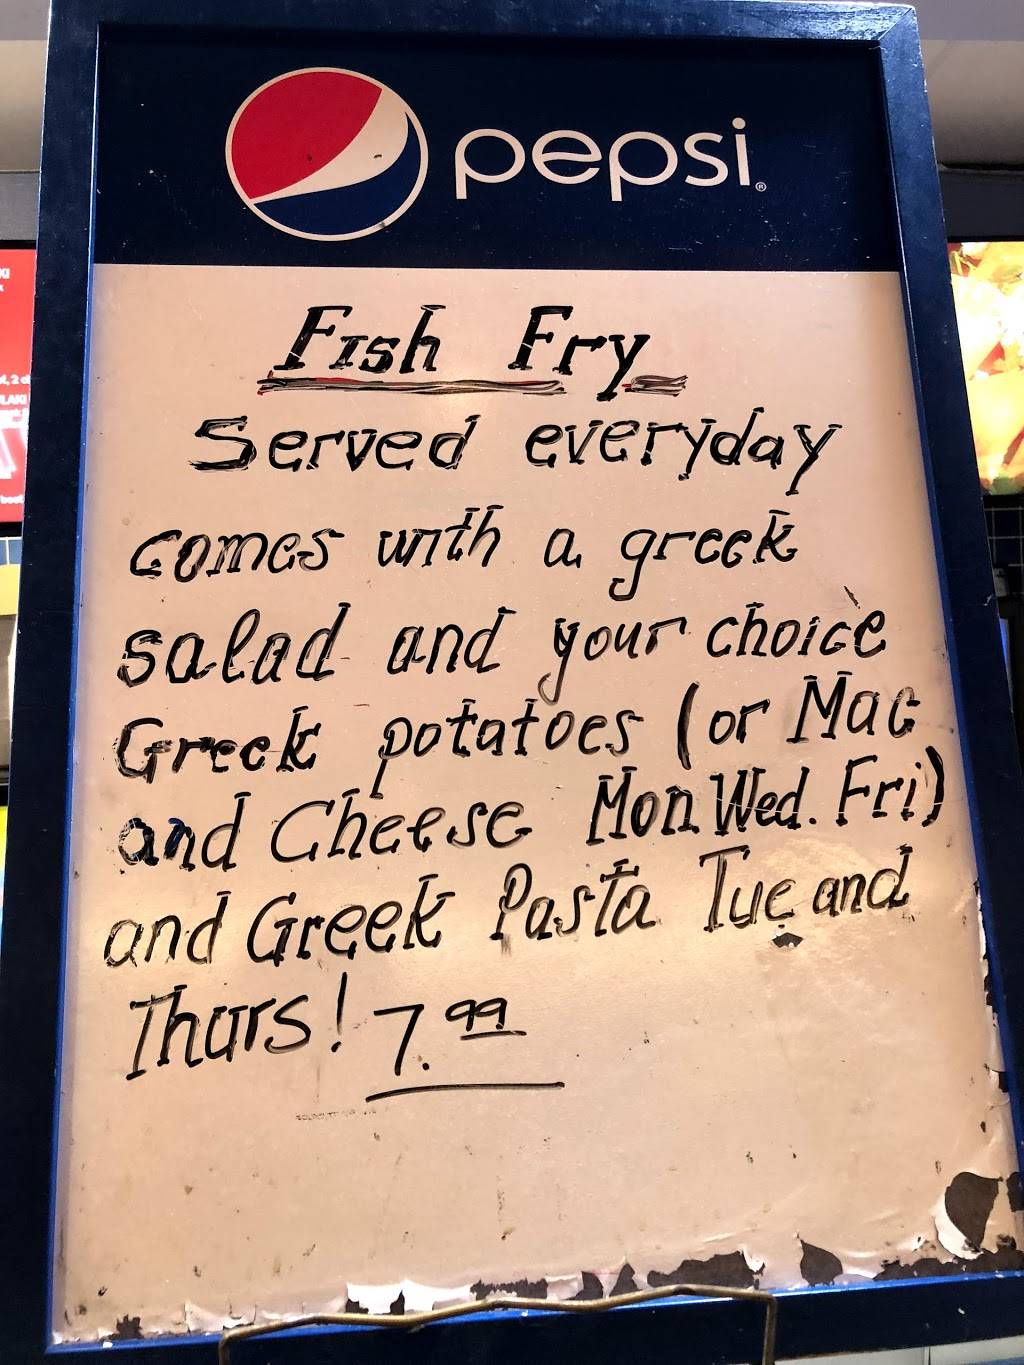 pepsi®
Fish Fry
Served everyday
comes with a greek
salad and your choice
Greek potatoes (or Mac
and Cheese Mon. Wed. Fri)
and Greek Pasta Tue and
Thurs! 7.99